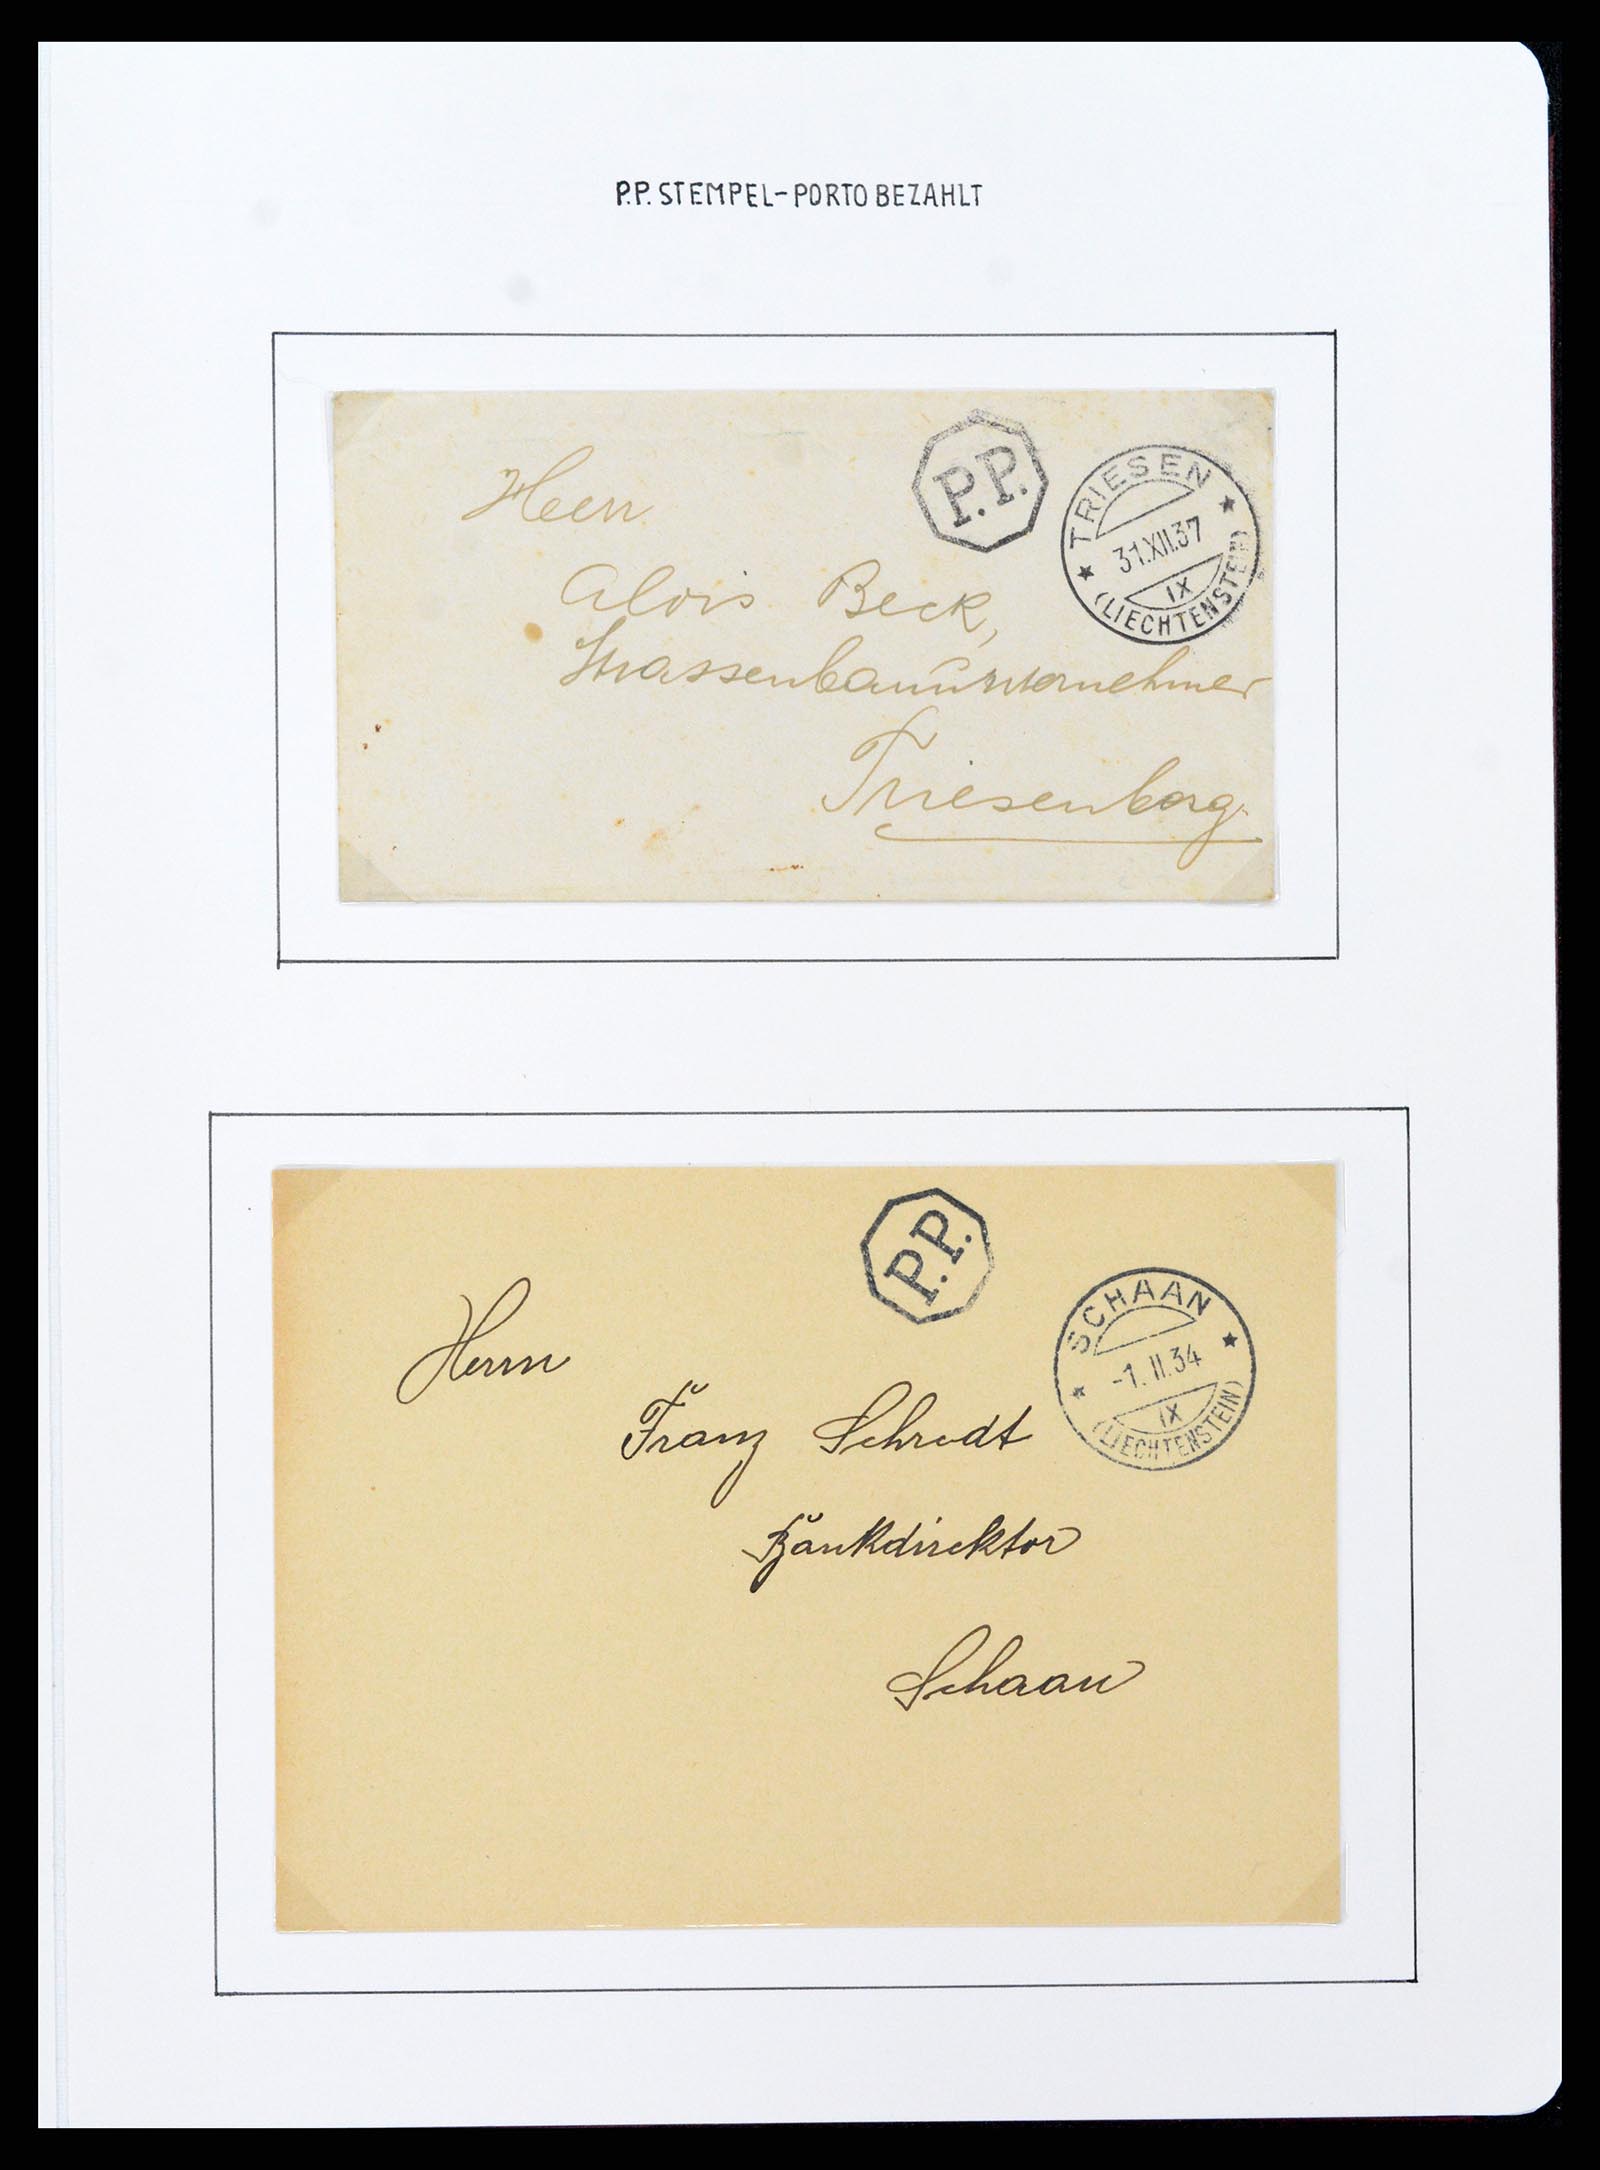 P.P. STEMPEL-PORTO BEZAHLT
P.P.
TRIESEN
31.XII.37
IX
(LIECHTENSTEIN)
Herrn
Alois Beck,
Strassenbauunternehmer
Triesenberg.
P.P.
SCHAAN
-1.II.34
IX
(LIECHTENSTEIN)
Herrn
Franz Schredt
Bankdirektor
Schaan